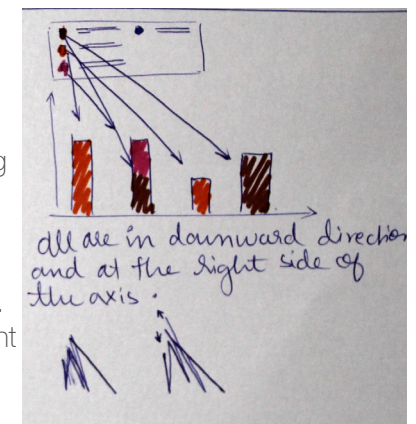 g
all are in downward direction
and at the right side of
the axis.
nt